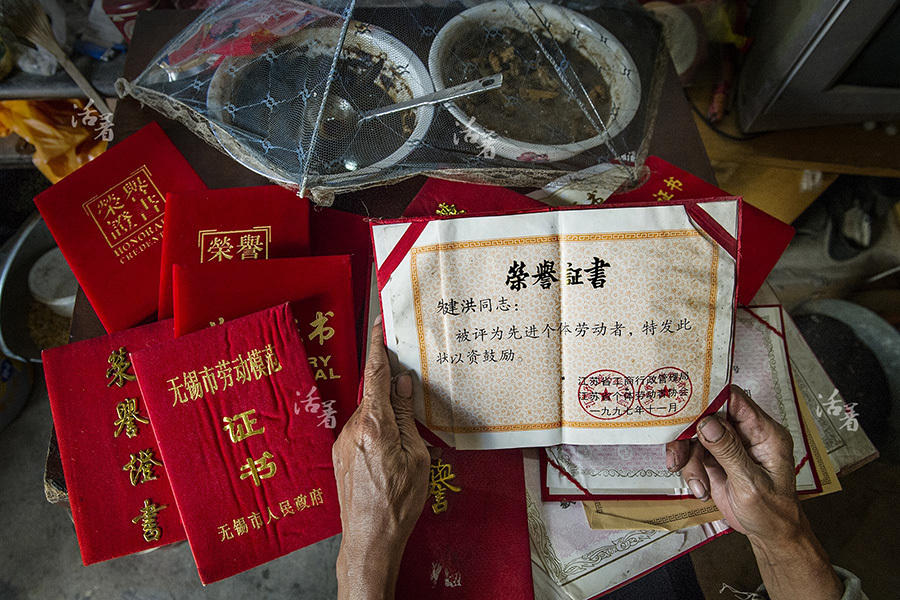 活著
活著
榮譽
HONORA
CREDEN
榮譽
书
RY
AL
榮
譽
證
書
无锡市劳动模范
证
书
无锡市人民政府
活著
譽
书
榮譽証書
朱建洪同志：
被评为先进个体劳动者，特发此
状以资鼓励。
江苏省工商行政管理局
江苏省个体劳动者协会
一九九七年十一月
活著